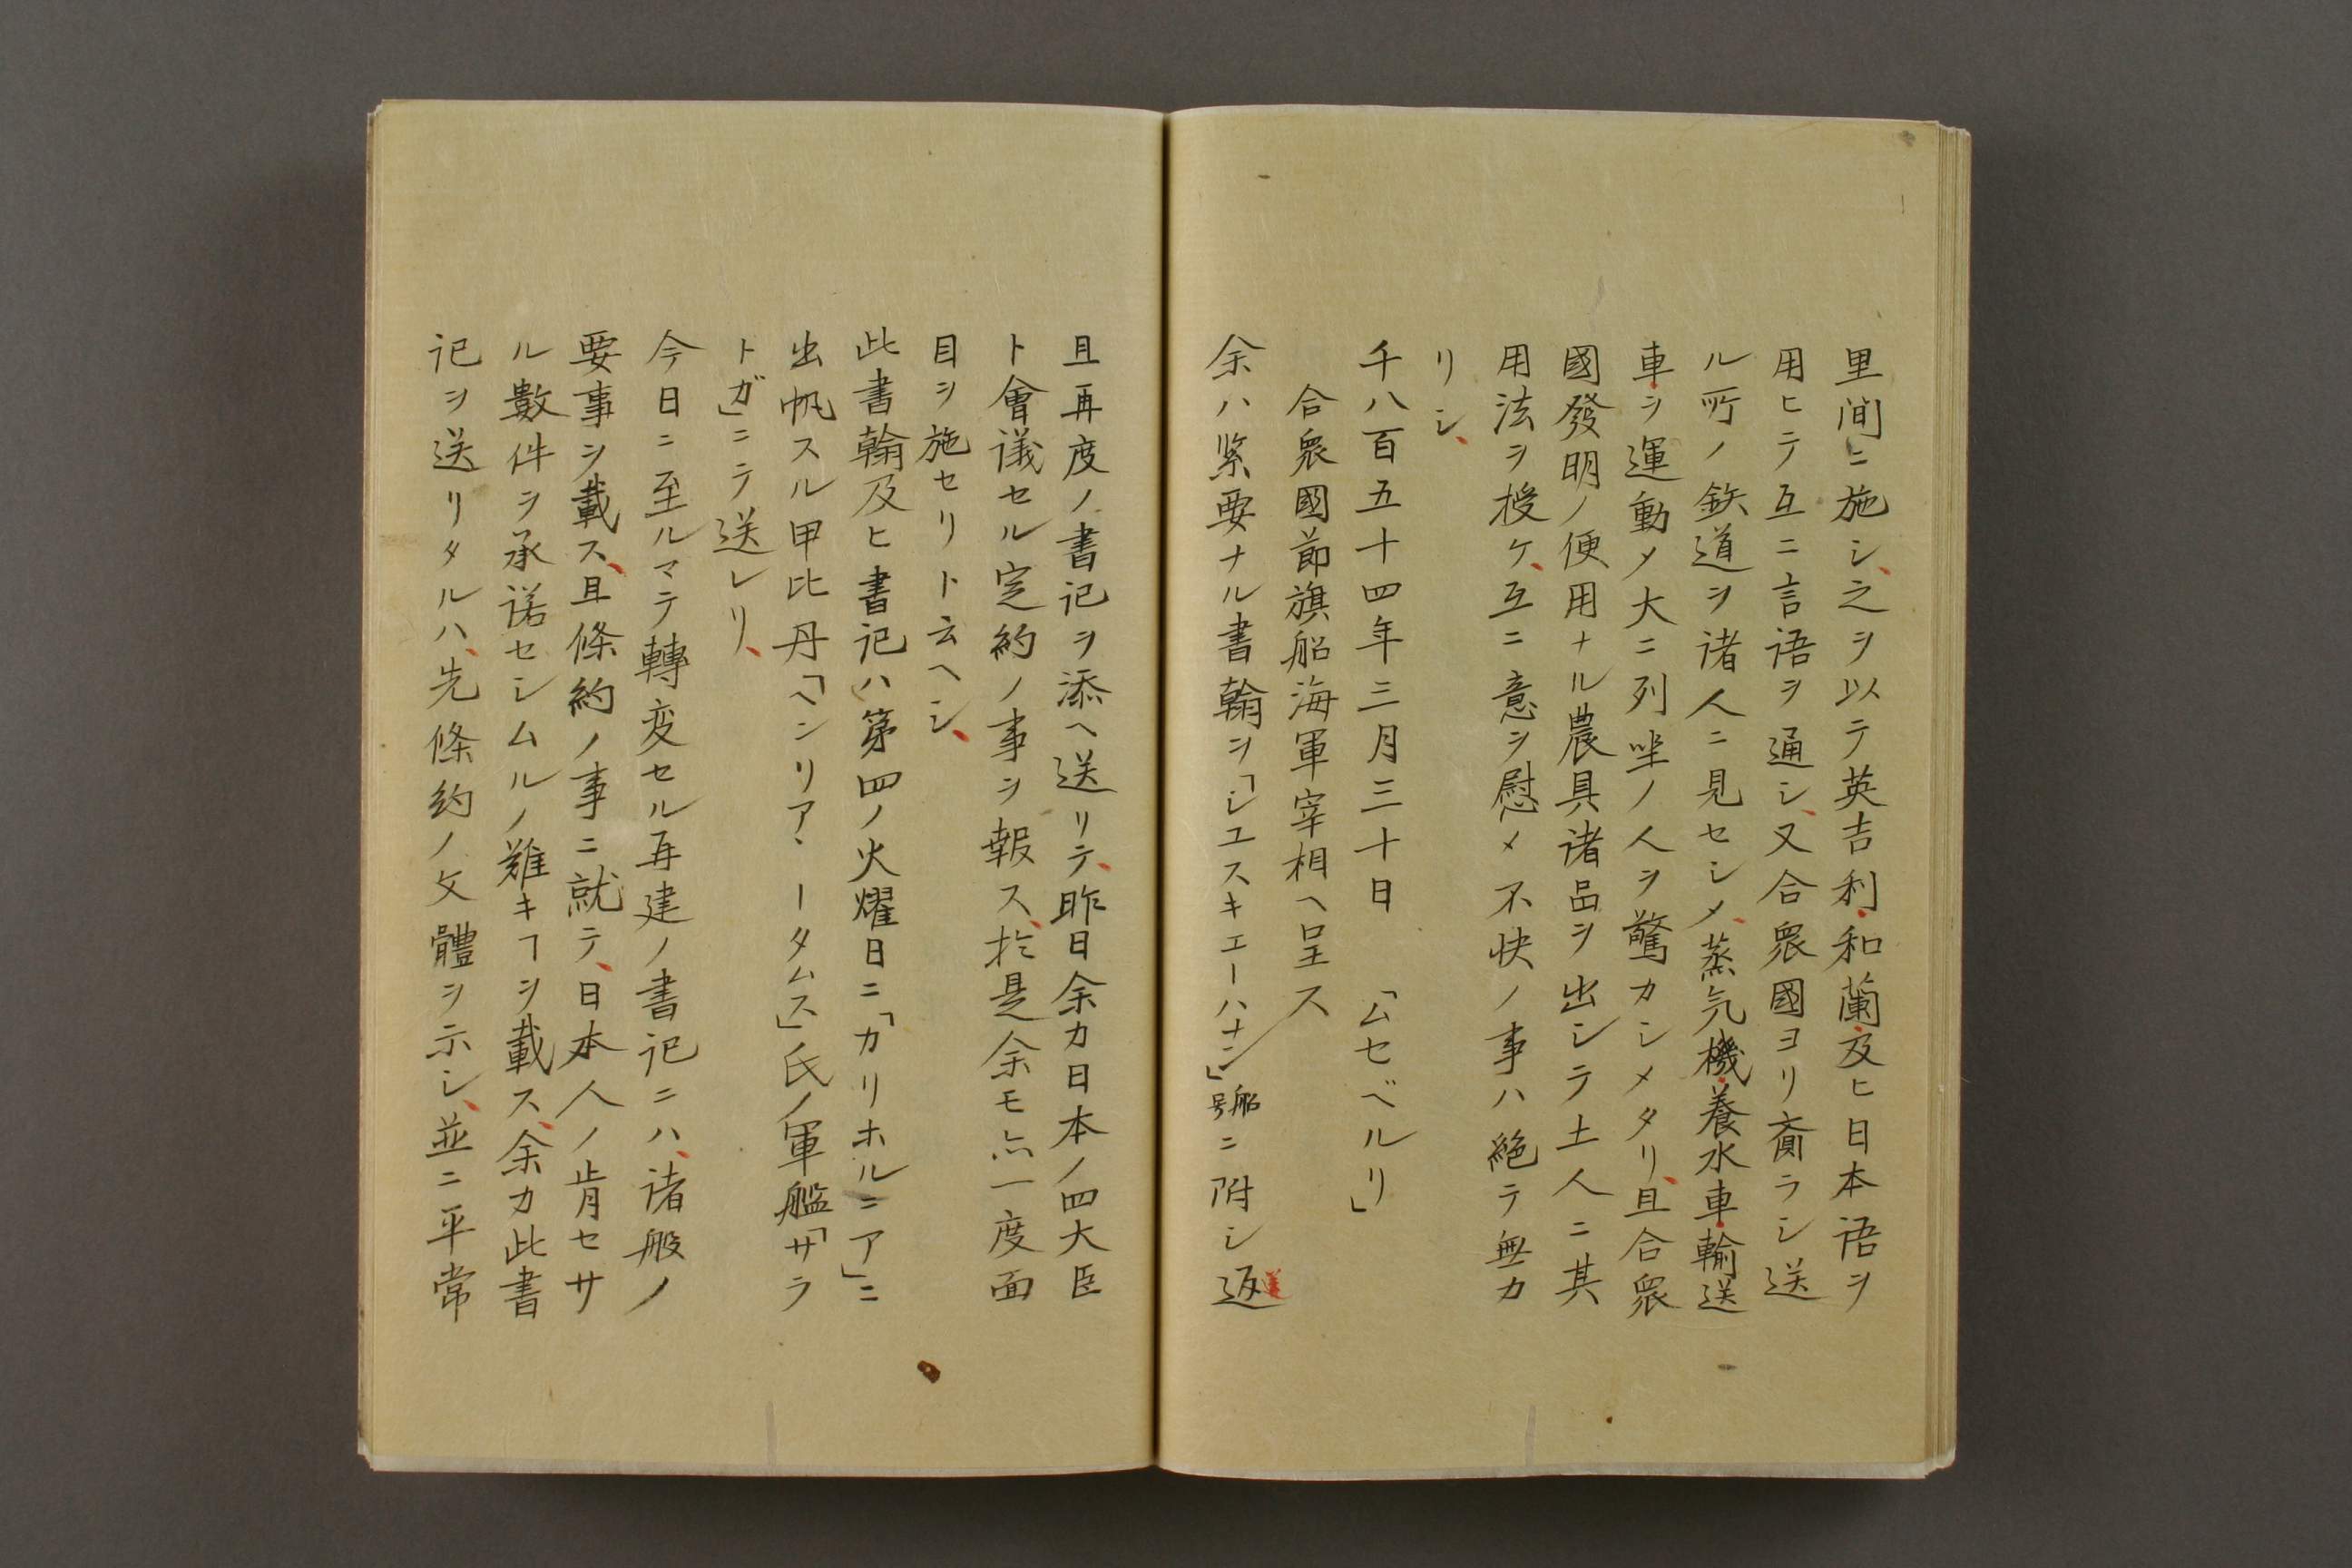 里間ニ施シ、之ヲ以テ英吉利・和蘭及ヒ日本語ヲ
用ヒテ互ニ言語ヲ通シ、又合衆國ヨリ齎ラシ送
ル所ノ鉄道ヲ諸人ニ見セシメ、蒸気機・養水車・輸送
車ヲ運動メ大ニ列坐ノ人ヲ驚カシメタリ、且合衆
國發明ノ便用ナル農具諸品ヲ出シテ土人ニ其
用法ヲ授ケ、互ニ意ヲ慰メ不快ノ事ハ絶テ無カ
リシ、
千八百五十四年三月三十日 「ムセベルリ」
合衆國節旗船海軍宰相ヘ呈ス
余ハ緊要ナル書翰ヲ「シユスキエーハナン」船号ニ附シ返送
且再度ノ書記ヲ添ヘ送リテ、昨日余カ日本ノ四大臣
ト會議セル定約ノ事ヲ報ス、於是余モ亦一度面
目ヲ施セリト云ヘシ、
此書翰及ヒ書記ハ第四ノ火燿日ニ「カリホルニア」ニ
出帆スル甲比丹「ヘンリア、ータムス」氏ノ軍艦「サラ
トガ」ニテ送レリ、
今日ニ至ルマテ轉変セル再建ノ書記ニハ、諸般ノ
要事ヲ載ス、且條約ノ事ニ就テ、日本人ノ肯セサ
ル數件ヲ承諾セシムルノ難キヿヲ載ス、余カ此書
記ヲ送リタルハ、先條約ノ文體ヲ示シ、並ニ平常